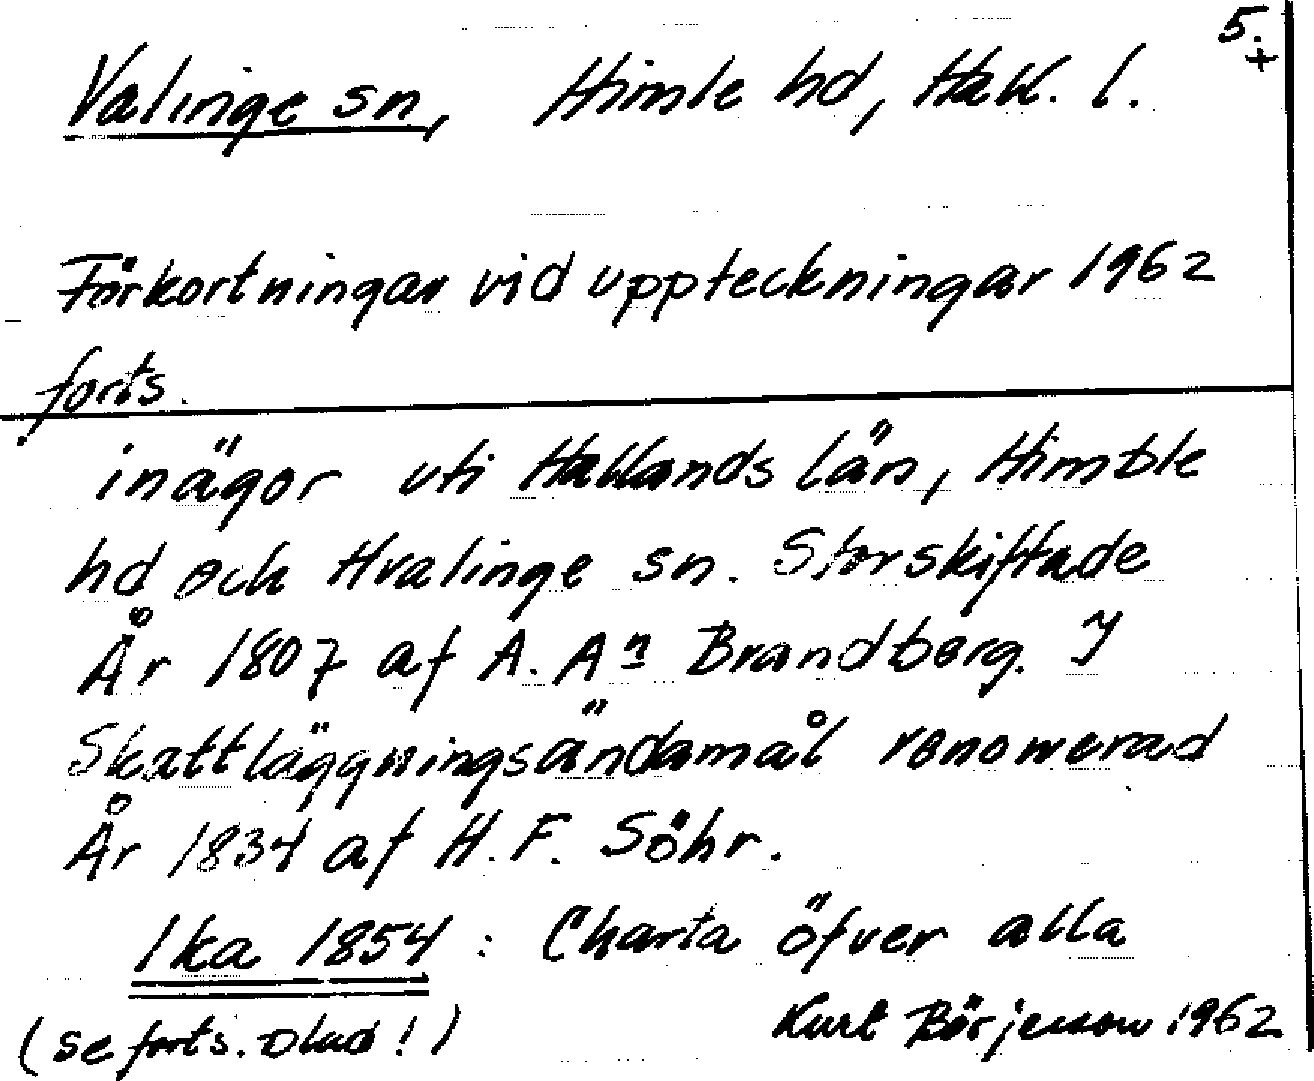 5.
+
Valinge sn, Himle hd, Hall. l.
Förkortningar vid uppteckningar 1962
forts.
inägor uti Hallands län, Himble
hd och Hvalinge sn. Storskiftade
År 1807 af A. An Brandberg. I
Skattläggningsändamål renoverad
År 1834 af H. F. Söhr.
lka 1854 : Charta öfver alla
(se forts. blad!) Kurt Börjesson 1962